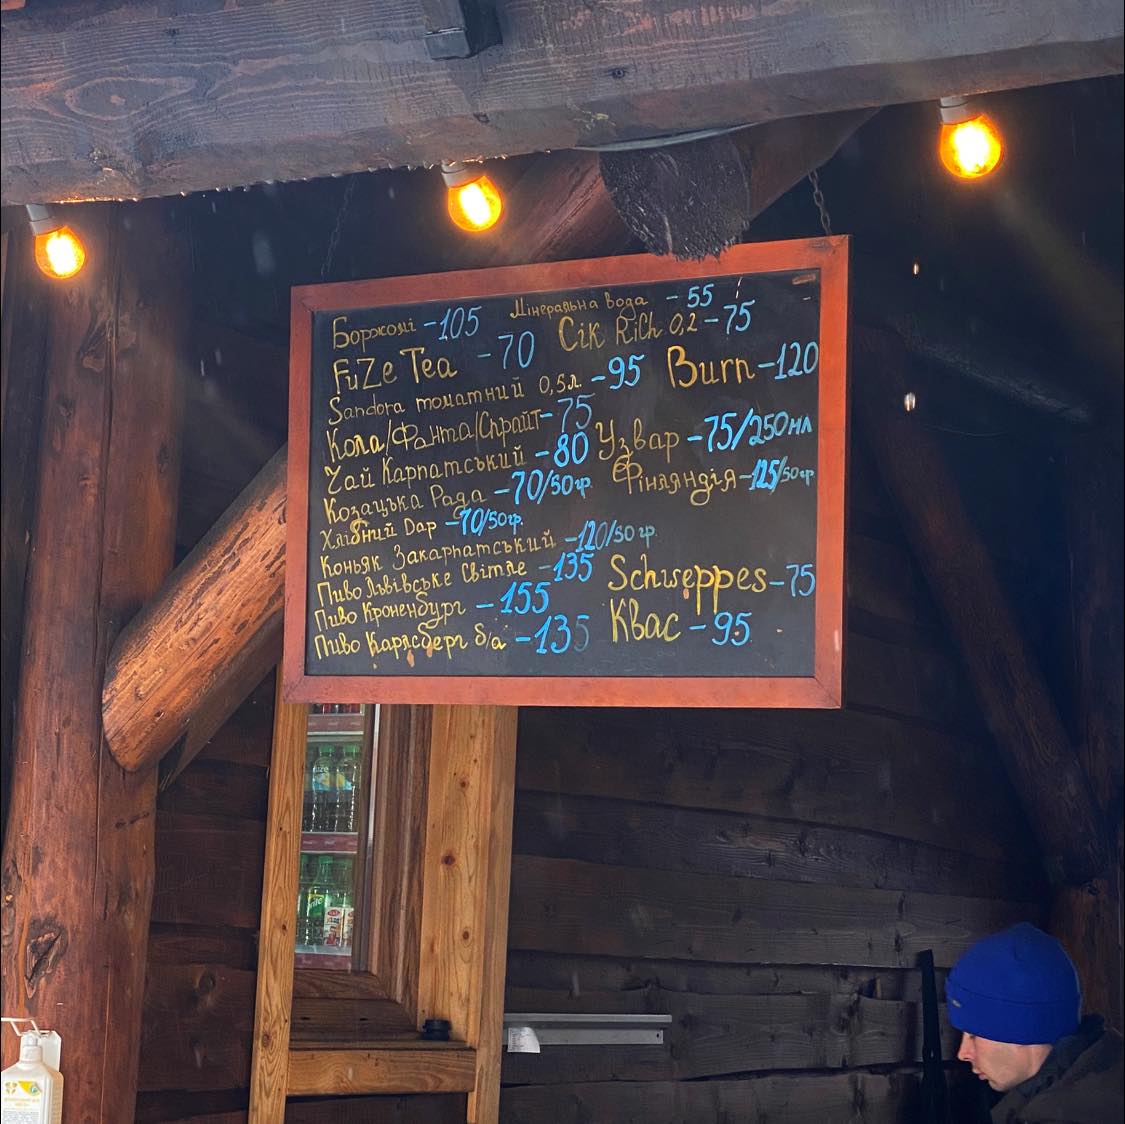 Мінеральна вода - 55
Боржомі - 105
Сік RiCh 0,2 - 75
FuZe Tea - 70
Burn - 120
Sandora томатний 0,5л. - 95
Кола/Фанта/Спрайт - 75
Узвар - 75/250мл
Чай Карпатський - 80
Фінляндія - 125/50гр.
Козацька Рада - 70/50гр.
Хлібний Дар - 70/50гр.
Коньяк Закарпатський - 120/50гр.
Пиво Львівське Світле - 135
Schweppes - 75
Пиво Кроненбург - 155
Квас - 95
Пиво Карлсберг б/а - 135